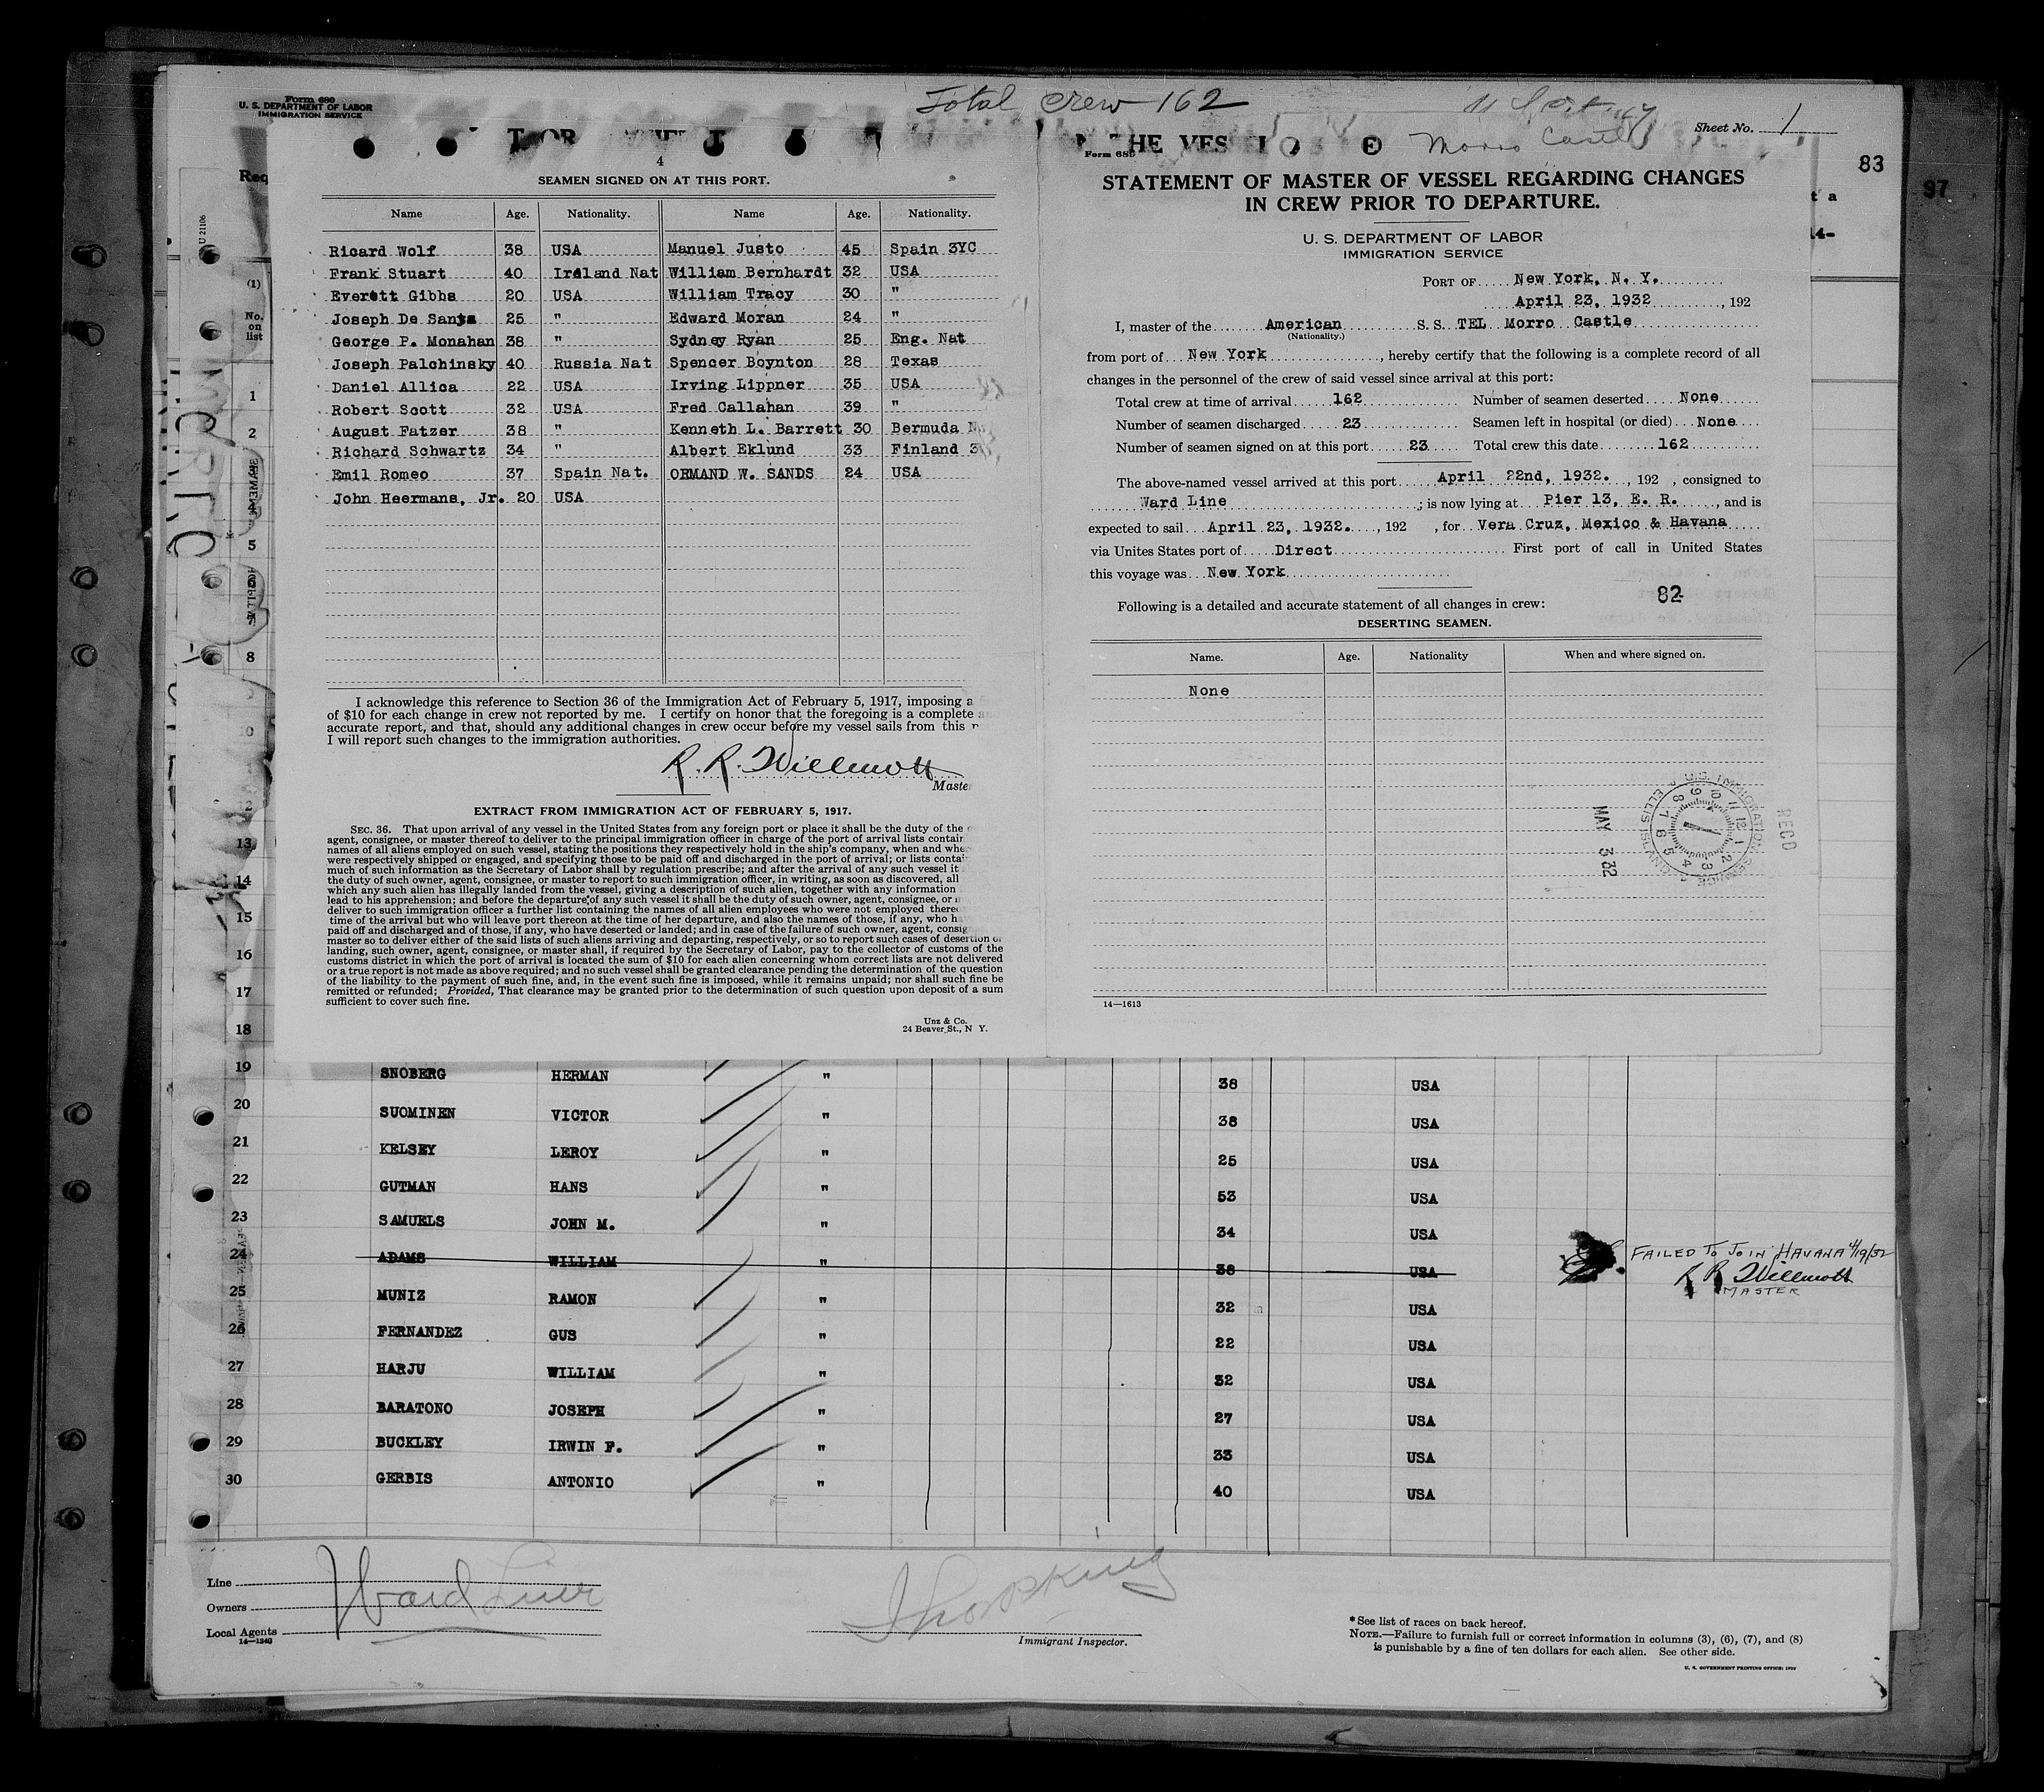 Form 680
U. S. DEPARTMENT OF LABOR
IMMIGRATION SERVICE
Total Crew 162
Morro Castle
Sheet No. 1
83
97
4
SEAMEN SIGNED ON AT THIS PORT.
Name Age. Nationality. Name Age. Nationality.
Ricard Wolf 38 USA Manuel Justo 45 Spain 3YC
Frank Stuart 40 Ireland Nat William Bernhardt 32 USA
Everett Gibbs 20 USA William Tracy 30 "
Joseph De Santa 25 " Edward Moran 24 "
George P. Monahan 38 " Sydney Ryan 25 Eng. Nat
Joseph Palchinsky 40 Russia Nat Spencer Boynton 28 Texas
Daniel Allica 22 USA Irving Lippner 35 USA
Robert Scott 32 USA Fred Callahan 39 "
August Fatzer 38 " Kenneth L. Barrett 30 Bermuda N
Richard Schwartz 34 " Albert Eklund 33 Finland 3
Emil Romeo 37 Spain Nat. ORMAND W. SANDS 24 USA
John Heermans, Jr. 20 USA
I acknowledge this reference to Section 36 of the Immigration Act of February 5, 1917, imposing a
of $10 for each change in crew not reported by me. I certify on honor that the foregoing is a complete
accurate report, and that, should any additional changes in crew occur before my vessel sails from this
I will report such changes to the immigration authorities.
R. R. Willmott
Master
EXTRACT FROM IMMIGRATION ACT OF FEBRUARY 5, 1917.
SEC. 36. That upon arrival of any vessel in the United States from any foreign port or place it shall be the duty of the
agent, consignee, or master thereof to deliver to the principal immigration officer in charge of the port of arrival lists contain
names of all aliens employed on such vessel, stating the positions they respectively hold in the ship's company, when and whe
were respectively shipped or engaged, and specifying those to be paid off and discharged in the port of arrival; or lists contai
much of such information as the Secretary of Labor shall by regulation prescribe; and after the arrival of any such vessel it
the duty of such owner, agent, consignee, or master to report to such immigration officer, in writing, as soon as discovered, all
which any such alien has illegally landed from the vessel, giving a description of such alien, together with any information
lead to his apprehension; and before the departure of any such vessel it shall be the duty of such owner, agent, consignee, or
deliver to such immigration officer a further list containing the names of all alien employees who were not employed there
time of the arrival but who will leave port thereon at the time of her departure, and also the names of those, if any, who h
paid off and discharged and of those, if any, who have deserted or landed; and in case of the failure of such owner, agent, consig
master so to deliver either of the said lists of such aliens arriving and departing, respectively, or so to report such cases of desertion or
landing, such owner, agent, consignee, or master shall, if required by the Secretary of Labor, pay to the collector of customs of the
customs district in which the port of arrival is located the sum of $10 for each alien concerning whom correct lists are not delivered
or a true report is not made as above required; and no such vessel shall be granted clearance pending the determination of the question
of the liability to the payment of such fine, and, in the event such fine is imposed, while it remains unpaid; nor shall such fine be
remitted or refunded; Provided, That clearance may be granted prior to the determination of such question upon deposit of a sum
sufficient to cover such fine.
Unz & Co.
24 Beaver St., N Y.
Form 685
STATEMENT OF MASTER OF VESSEL REGARDING CHANGES
IN CREW PRIOR TO DEPARTURE.
U. S. DEPARTMENT OF LABOR
IMMIGRATION SERVICE
PORT OF New York, N. Y.
April 23, 1932, 192
I, master of the American S. S. TEL Morro Castle
(Nationality.)
from port of New York, hereby certify that the following is a complete record of all
changes in the personnel of the crew of said vessel since arrival at this port:
Total crew at time of arrival 162 Number of seamen deserted None
Number of seamen discharged 23 Seamen left in hospital (or died) None
Number of seamen signed on at this port 23 Total crew this date 162
The above-named vessel arrived at this port April 22nd, 1932. , 192 , consigned to
Ward Line ; is now lying at Pier 13, E. R. , and is
expected to sail April 23, 1932. , 192 , for Vera Cruz, Mexico & Havana
via Unites States port of Direct First port of call in United States
this voyage was New York
82
Following is a detailed and accurate statement of all changes in crew:
DESERTING SEAMEN.
Name. Age. Nationality When and where signed on.
None
RECD
U.S. IMMIGRATION SERVICE
ELLIS ISLAND
MAY 3 32
14—1613
19 SNOBERG HERMAN " 38 USA
20 SUOMINEN VICTOR " 38 USA
21 KELSEY LEROY " 25 USA
22 GUTMAN HANS " 53 USA
23 SAMUELS JOHN M. " 34 USA
24 ADAMS WILLIAM " 38 USA FAILED TO JOIN HAVANA 4/19/32
R R Willmott
MASTER
25 MUNIZ RAMON " 32 USA
26 FERNANDEZ GUS " 22 USA
27 HARJU WILLIAM " 32 USA
28 BARATONO JOSEPH " 27 USA
29 BUCKLEY IRWIN F. " 33 USA
30 GERBIS ANTONIO " 40 USA
Line
Owners Ward Line
Local Agents
14—1240
Immigrant Inspector.
*See list of races on back hereof.
NOTE.—Failure to furnish full or correct information in columns (3), (6), (7), and (8)
is punishable by a fine of ten dollars for each alien. See other side.
U. S. GOVERNMENT PRINTING OFFICE: 1929